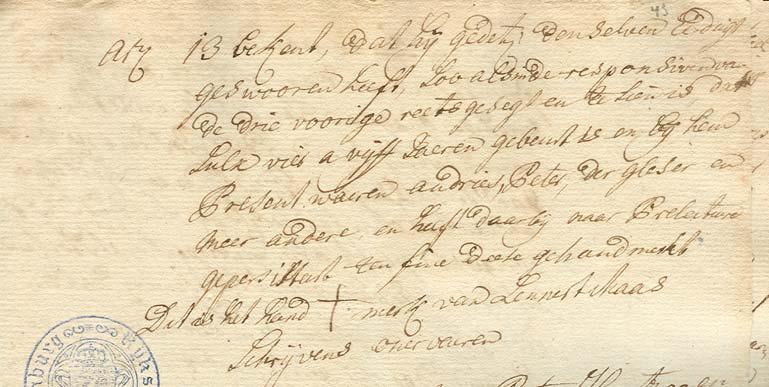 43
art 13 bekent, dat hij gedetj denselven Eedt
geswooren heeft, soo als in de responsiven
de drie voorige reets gesegt en te sien is dat
sulx vier a vijff Jaeren gebeurt is en bij hem
Present waeren andries, Peter, der gleser en
meer andere, en heeft daarbij naar Prelecture
gepersisteert ten fine deese gehandmerkt
Dit is het hand + merk van Lennert Maas
Schrijvens onervaeren
Peter
burg Rijks